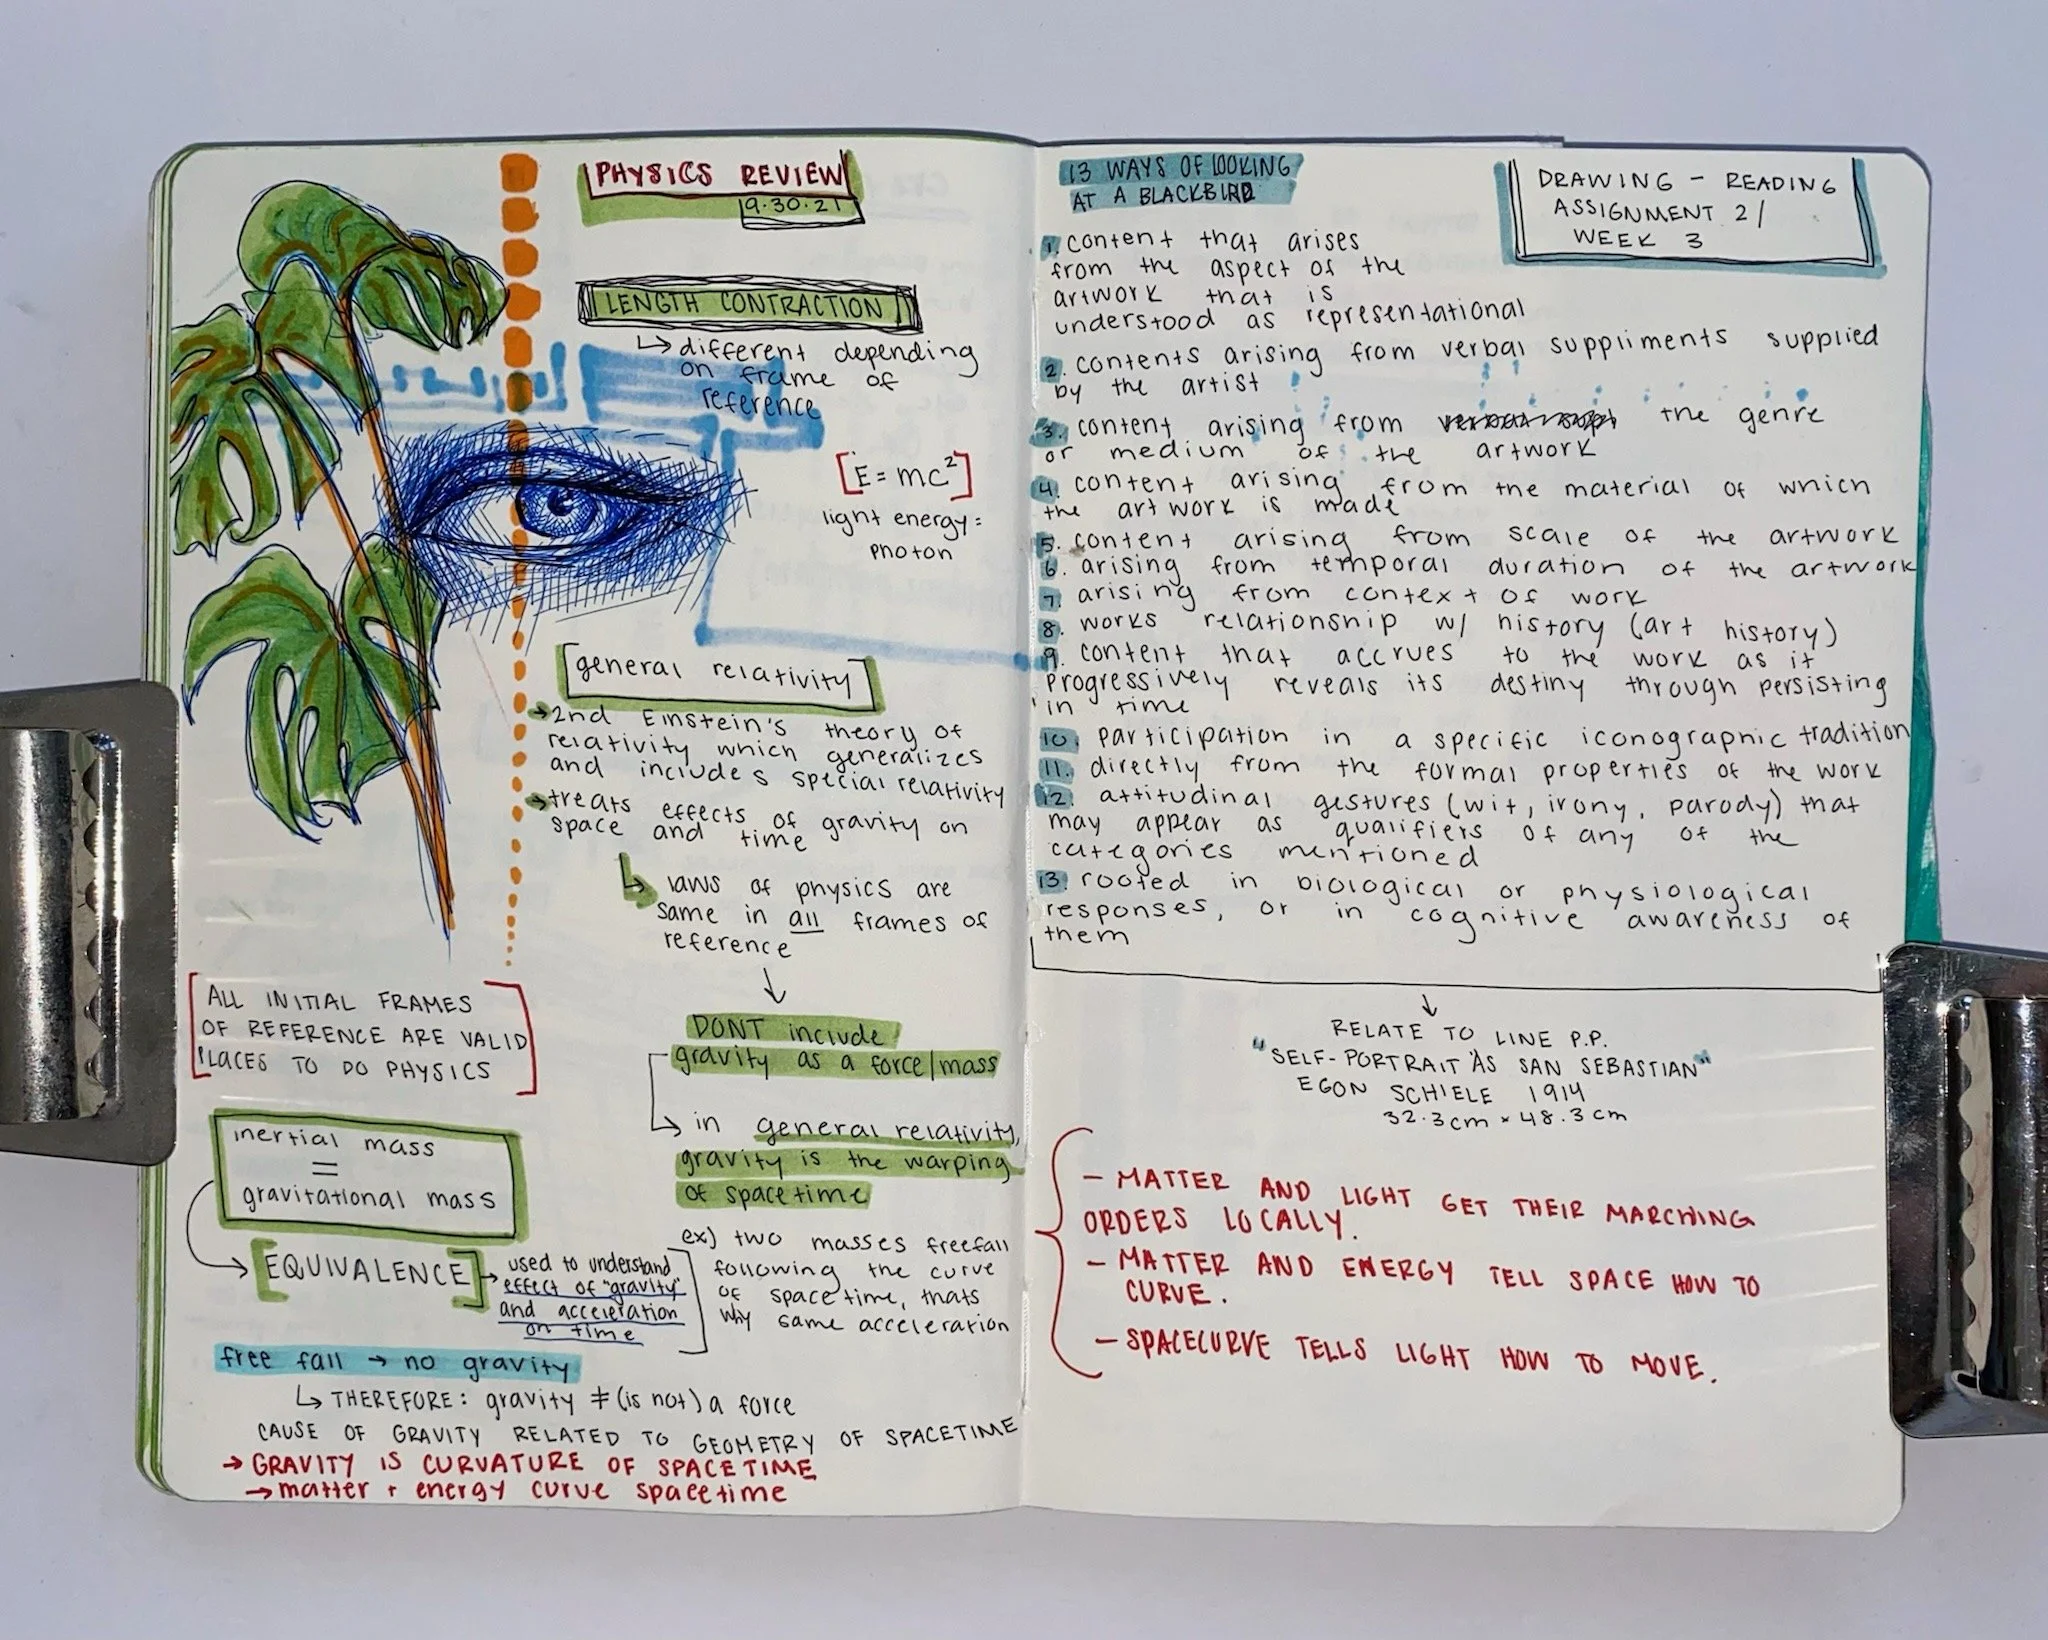 PHYSICS REVIEW
9.30.21
LENGTH CONTRACTION
↳ different depending
on frame of
reference
[E = mc²]
light energy =
photon
[general relativity]
→ 2nd Einstein's theory of
relativity which generalizes
and includes special relativity
→ treats effects of gravity on
space and time
↳ laws of physics are
same in all frames of
reference
↓
DONT include
gravity as a force/mass
↳ in general relativity,
gravity is the warping
of spacetime
ex) two masses freefall
following the curve
of spacetime, thats
why same acceleration
[ALL INITIAL FRAMES
OF REFERENCE ARE VALID
PLACES TO DO PHYSICS]
inertial mass
=
gravitational mass
[EQUIVALENCE]
→ used to understand
effect of "gravity"
and acceleration
on time
free fall → no gravity
↳ THEREFORE: gravity ≠ (is not) a force
CAUSE OF GRAVITY RELATED TO GEOMETRY OF SPACETIME
→ GRAVITY IS CURVATURE OF SPACETIME
→ matter + energy curve spacetime
13 WAYS OF LOOKING
AT A BLACKBIRD
DRAWING - READING
ASSIGNMENT 2/
WEEK 3
1. content that arises
from the aspect of the
artwork that is
understood as representational
2. contents arising from verbal suppliments supplied
by the artist
3. content arising from the genre
or medium of the artwork
4. content arising from the material of which
the artwork is made
5. content arising from scale of the artwork
6. arising from temporal duration of the artwork
7. arising from context of work
8. works relationship w/ history (art history)
9. content that accrues to the work as it
progressively reveals its destiny through persisting
in time
10. participation in a specific iconographic tradition
11. directly from the formal properties of the work
12. attitudinal gestures (wit, irony, parody) that
may appear as qualifiers of any of the
categories mentioned
13. rooted in biological or physiological
responses, or in cognitive awareness of
them
↓
RELATE TO LINE P.P.
"SELF-PORTRAIT AS SAN SEBASTIAN"
EGON SCHIELE 1914
32.3cm × 48.3cm
- MATTER AND LIGHT GET THEIR MARCHING
ORDERS LOCALLY.
- MATTER AND ENERGY TELL SPACE HOW TO
CURVE.
- SPACECURVE TELLS LIGHT HOW TO MOVE.